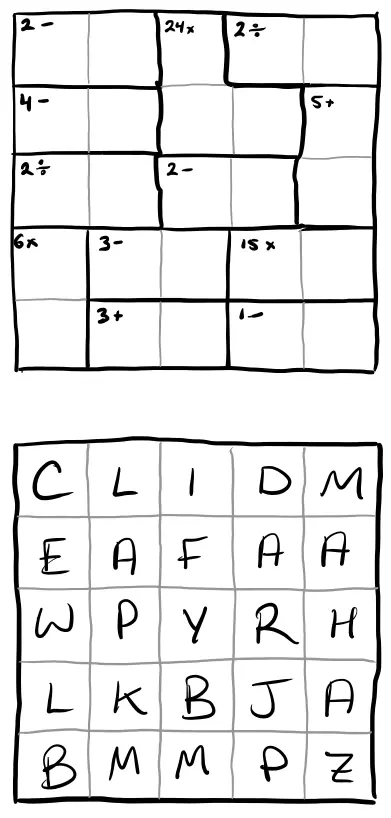 2- 24x 2÷
4- 5+
2÷ 2-
6x 3- 15x
3+ 1-
C L I D M
E A F A A
W P Y R H
L K B J A
B M M P Z